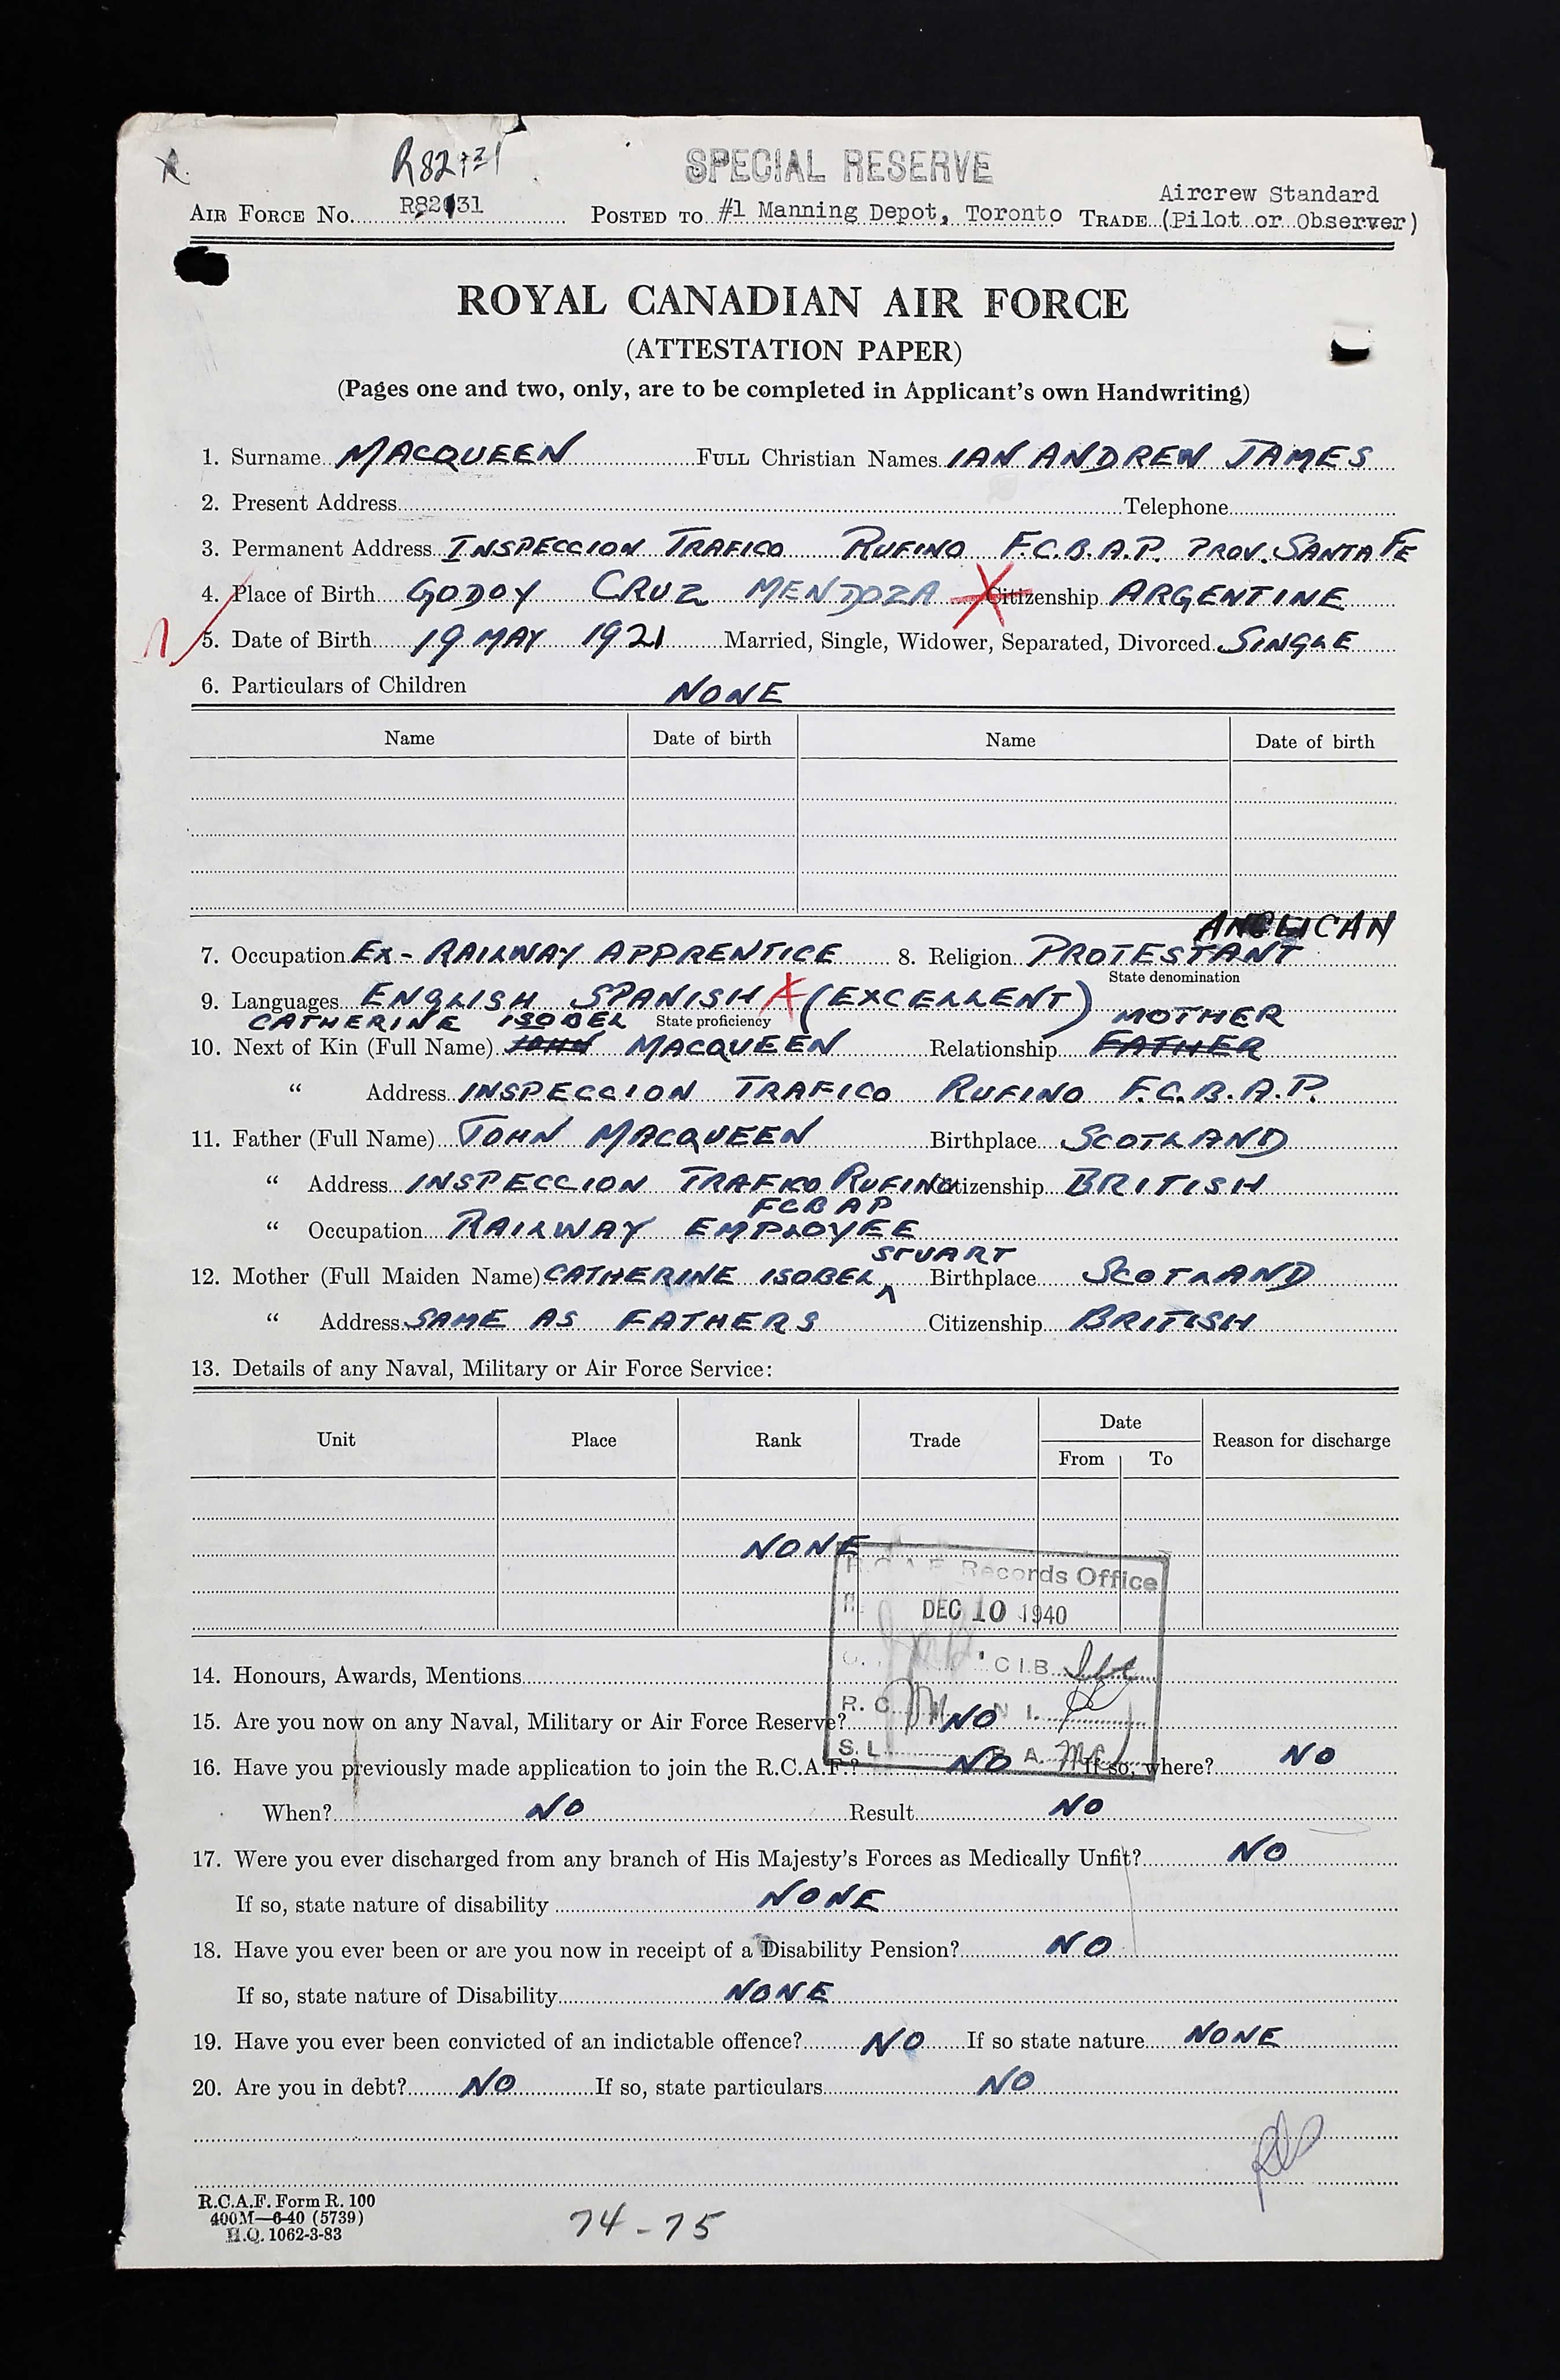 SPECIAL RESERVE
Aircrew Standard
AIR FORCE No. POSTED TO #1 Manning Depot, Toronto TRADE (Pilot or Observer)
ROYAL CANADIAN AIR FORCE
(ATTESTATION PAPER)
(Pages one and two, only, are to be completed in Applicant's own Handwriting)
1. Surname MACQUEEN FULL Christian Names IAN ANDREW JAMES
2. Present Address Telephone
3. Permanent Address INSPECCION TRAFICO RUFINO F.C.B.A.P. PROV. SANTA FE
4. Place of Birth GODOY CRUZ MENDOZA Citizenship ARGENTINE
5. Date of Birth 19 MAY 1921 Married, Single, Widower, Separated, Divorced SINGLE
6. Particulars of Children NONE
Name Date of birth Name Date of birth
ANGLICAN
7. Occupation EX-RAILWAY APPRENTICE 8. Religion PROTESTANT
State denomination
9. Languages ENGLISH SPANISH (EXCELLENT)
CATHERINE ISOBEL State proficiency MOTHER
10. Next of Kin (Full Name) JOHN MACQUEEN Relationship FATHER
" Address INSPECCION TRAFICO RUFINO F.C.B.A.P.
11. Father (Full Name) JOHN MACQUEEN Birthplace SCOTLAND
" Address INSPECCION TRAFICO RUFINO Citizenship BRITISH
FCBAP
" Occupation RAILWAY EMPLOYEE
STUART
12. Mother (Full Maiden Name) CATHERINE ISOBEL Birthplace SCOTLAND
" Address SAME AS FATHERS Citizenship BRITISH
13. Details of any Naval, Military or Air Force Service:
Unit Place Rank Trade Date Reason for discharge
From To
NONE
R.C.A.F. Records Office
DEC 10 1940
C.I.B.
14. Honours, Awards, Mentions
15. Are you now on any Naval, Military or Air Force Reserve? NO
16. Have you previously made application to join the R.C.A.F.? NO If so, where? NO
When? NO Result NO
17. Were you ever discharged from any branch of His Majesty's Forces as Medically Unfit? NO
If so, state nature of disability NONE
18. Have you ever been or are you now in receipt of a Disability Pension? NO
If so, state nature of Disability NONE
19. Have you ever been convicted of an indictable offence? NO If so state nature NONE
20. Are you in debt? NO If so, state particulars NO
R.C.A.F. Form R. 100
400M—6-40 (5739)
H.Q. 1062-3-83
74-75